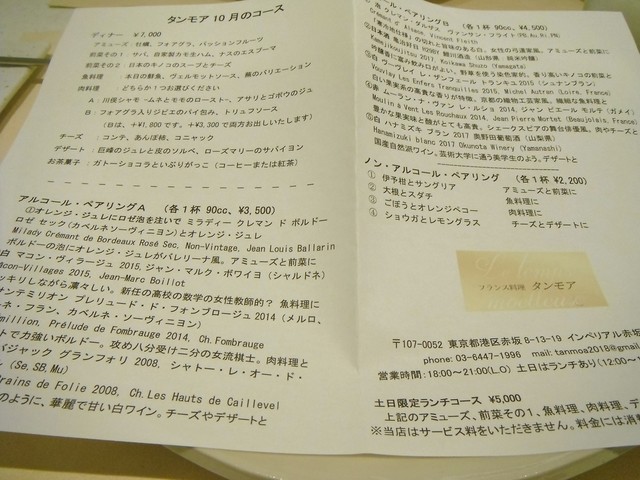 タンモア 10 月のコース
ディナー ¥7,000
アミューズ 牡蠣、フォアグラ、パッションフルーツ
前菜その1 サバ、自家製カモ生ハム、ナスのエスプーマ
前菜その2 日本のキノコのスープとチーズ
魚料理 本日の鮮魚、ヴェルモットソース、蕪のバリエーション
肉料理 どちらか1つお選びください
A:川俣シャモ ムネとモモのロースト、アサリとゴボウのジュ
B:フォアグラ入りジビエのパイ包み、トリュフソース
(Bは、+¥1,800です。+¥3,300で両方お出しいたします)
チーズ :コンテ、あんぽ柿、コニャック
デザート :巨峰のジュレと皮のソルベ、ローズマリーのサバイヨン
お茶菓子 :ガトーショコラといぶりがっこ(コーヒーまたは紅茶)
アルコール・ペアリングA (各1杯 90cc、¥3,500)
①オレンジ・ジュレにロゼ泡を注いで ミラディー クレマン ド ボルドー
ロゼ セック(カベルネソーヴィニヨン)とオレンジ・ジュレ
Milady Crémant de Bordeaux Rosé Sec, Non-Vintage, Jean Louis Ballarin
ボルドーの泡にオレンジ・ジュレがバレリーナ風。アミューズと前菜に
白 マコン・ヴィラージュ 2015, ジャン・マルク・ボワイヨ(シャルドネ)
acon-Villages 2015, Jean-Marc Boillot
ッキリしながら凛々しい。新任の高校の数学の女性教師的? 魚料理に
ンテミリオン プレリュード・ド・フォンブロージュ 2014 (メルロ、
ネ・フラン、カベルネ・ソーヴィニヨン)
million, Prélude de Fombrauge 2014, Ch.Fombrauge
ットで力強いボルドー。攻め八分受け二分の女流棋士。肉料理と
バジャック グランフォリ 2008, シャトー・レ・オー・ド・
ル (Se,SB,Mu)
Grains de Folie 2008, Ch.Les Hauts de Caillevel
のように、華麗で甘い白ワイン。チーズやデザートと
ール・ペアリングB (各1杯 90cc、¥4,500)
泡 クレマン・ダルザス ヴァンサン・フライト
Crémant d' Alsace, Vincent Fleith
②日本酒 亀治好日 H29BY 鯉川酒造(山形県 純米吟醸)
Kamejikoujitsu 2017, Koikawa Shuzo (Yamagata)
Vouvlay Les Enfers Tranquilles 2015, Michel Autran (Loire, France)
白い果実系の高貴な香りが特徴。京都の織物工芸家風。繊細な魚料理と
Moulin à Vent Les Rouchaux 2014, Jean Pierre Mortet (Beaujolais, France)
豊かな果実味と酸がとても高貴。シェークスピアの舞台俳優風。肉やチーズと
⑤白 ハナミズキ ブラン 2017 奥野田葡萄酒(山梨県)
Hanamizuki blanc 2017 Okunota Winery (Yamanashi)
国産自然派ワイン。芸術大学に通う美学生のよう。デザートと
ノン・アルコール・ペアリング (各1杯 ¥2,200)
① 伊予柑とサングリア アミューズと前菜に
② 大根とスダチ 魚料理に
③ ごぼうとオレンジペコー 肉料理に
④ ショウガとレモングラス チーズとデザートに
フランス料理 タンモア
〒107-0052 東京都港区赤坂 8-13-19 インペリアル赤坂
phone: 03-6447-1996 mail: tanmoa2018@gmail
営業時間:18:00~21:00(L.O) 土日はランチあり(12:00~
土日限定ランチコース ¥5,000
上記のアミューズ、前菜その1、魚料理、肉料理、デ
※当店はサービス料をいただきません。料金には消費